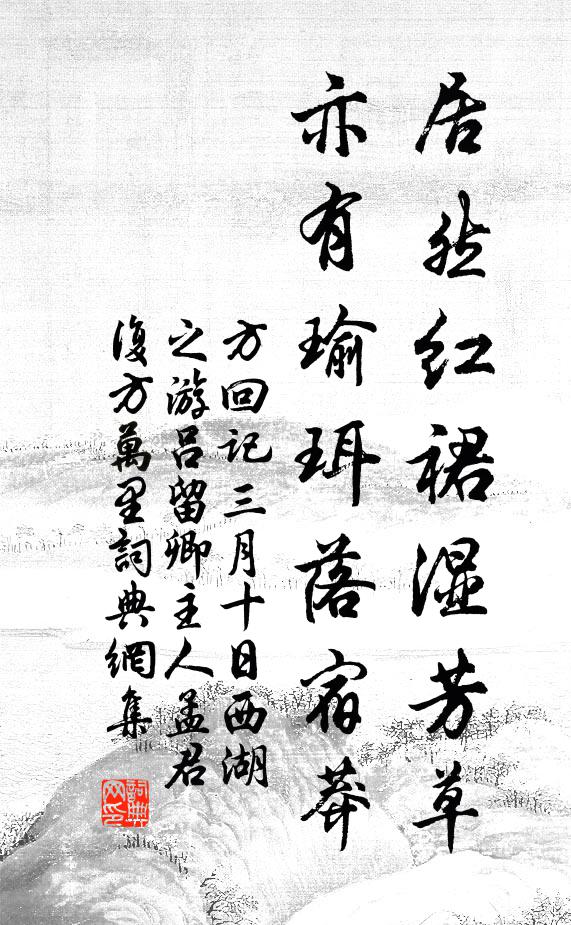 居然红裙湿芳草
亦有瑜珥落宿莽
方回记三月十日西湖
之游吕留卿主人孟君
復方萬里詞典網集
詞典网印